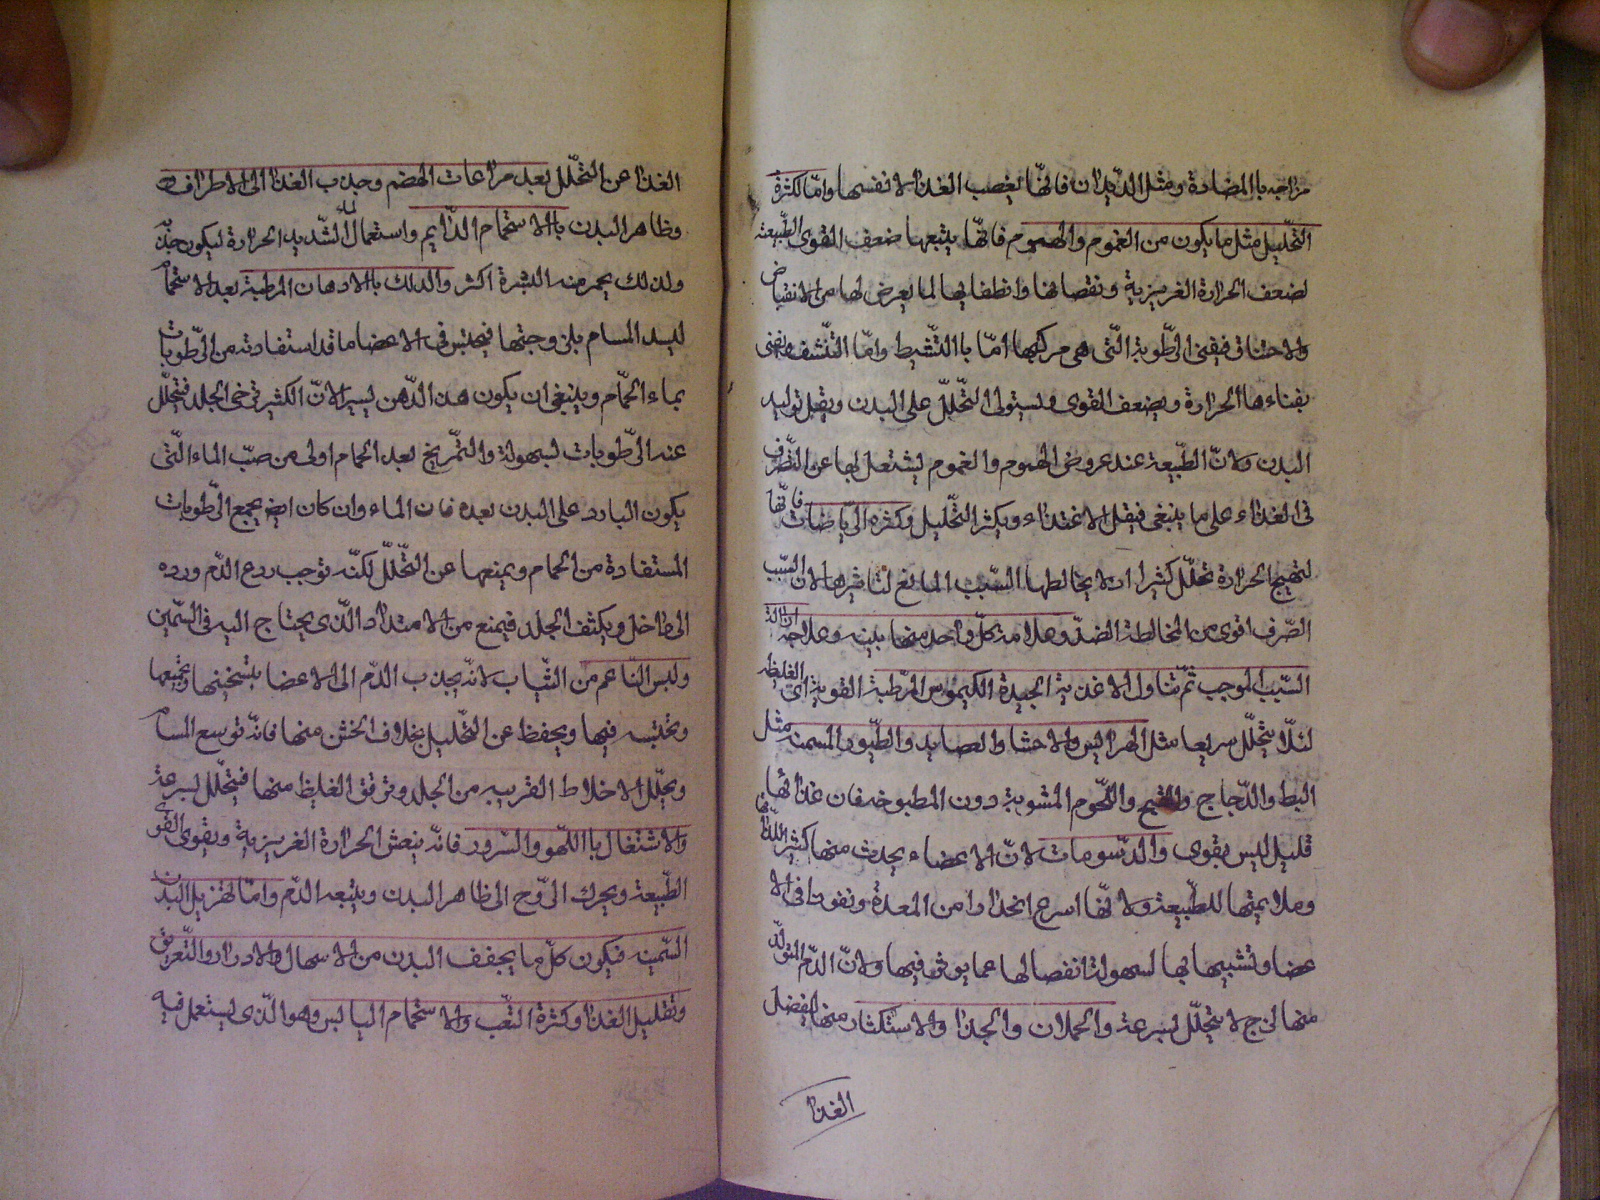 مزاجه با المضادة ومثل الديدان فانها يغصب الغذا لانفسها واما لكثرة
التحليل مثل ما يكون من الغموم والهموم فانها يتبعها ضعف القوى الطبيعة
لضعف الحرارة الغريزية ونقصانها وانطفايها لما يعرض لها من الانقباض
والاحتناق فيفنى الرطوبة التى هى مركبها اما با التشيط واما التنشف ويفنى
بفناءها الحرارة ويضعف القوى ويستولى التحلل على البدن ويقبل توليد
البدن ولان الطبيعة عند عروض الهموم والغموم يشتغل بها عن التصرف
فى الغذاء على ما ينبغى فيقل الاغتذاء ويكثر التحليل وكثره الرياضات فانها
لتهيج الحرارة تحلل كثيرا اذ لا يخالطها السبب المانع لتاثيرها لان السبب
الصرف اقوى من المخالطة الضد وعلامة كل واحد منها بينه وعلاجه ازالة
السبب الموجب ثم تناول الاغذية الجيدة الكيموس المرطبة القوية اى الغليظه
لئلا يتحلل سريعا مثل الهرايس والاحشا والعصايد والطيور المسمنه مثل
البط والدجاج والقبج واللحوم المشوية دون المطبوخه فان غذائها
قليل ليس بقوى والدسومات لان الاعضاء يجذب منها كثير اللذتها
وملايمتها للطبيعة ولانها اسرع انحدارا من المعدة ونفوذا فى الا
عضا وتشبيهها بها لسهولة انفصالها عما يوثر فيها ولان الدم المتولد
منها لزج لا يتحلل بسرعة والحملان والجدا والاستكثار منها ليفضل
الغذا
الغذا عن التحلل بعد مراعات الهضم وجذب الغذا الى الاطراف
وظاهر البدن با الاستحمام الدايم واستعمال الماء الشديد الحرارة ليكون جذبه
ولذلك يحمر منه البشرة اكثر والدلك با الادهان المرطبة بعد الاستحمام
ليسد المسام بلزوجتها فيحتبس فى الاعضا ما قد استفادته من الرطوبات
بماء الحمام وينبغى ان يكون هذا الدهن يسيرا لان الكثير ترخى الجلد فتحلل
عنه الرطوبات بسهولة والتمريخ بعد الحمام اولى من صب الماء التى
يكون البارد على البدن بعده فان الماء وان كان ايض يجمع الرطوبات
المستفادة من الحمام ويمنعها عن التحلل لكنه توجب ردع الدم ورده
الى داخل ويكثف الجلد فيمنع من الامتداد الذى يحتاج اليه فى السمين
ولبس الناعم من الثياب لانه يجذب الدم الى الاعضا بتسخينها وتجمعها
وتحتبسه فيها ويحفظ عن التحليل بخلاف الخشن منها فانه توسع المسام
ويحلل الاخلاط القريبه من الجلد وترقق الغليظ منها فيتحلل بسرعة
والاشتغال با اللهو والسرور فانه ينعش الحرارة الغريزية ويقوى القوى
الطبيعة ويحرك الروح الى ظاهر البدن ويتبعه الدم واما تهزيل البدن
السمين فيكون كل ما يجفف البدن من الاسهال والادرار والتعريق
وتقليل الغذا وكثرة التعب والاستحمام اليابس وهو الذى يستعمل فيه